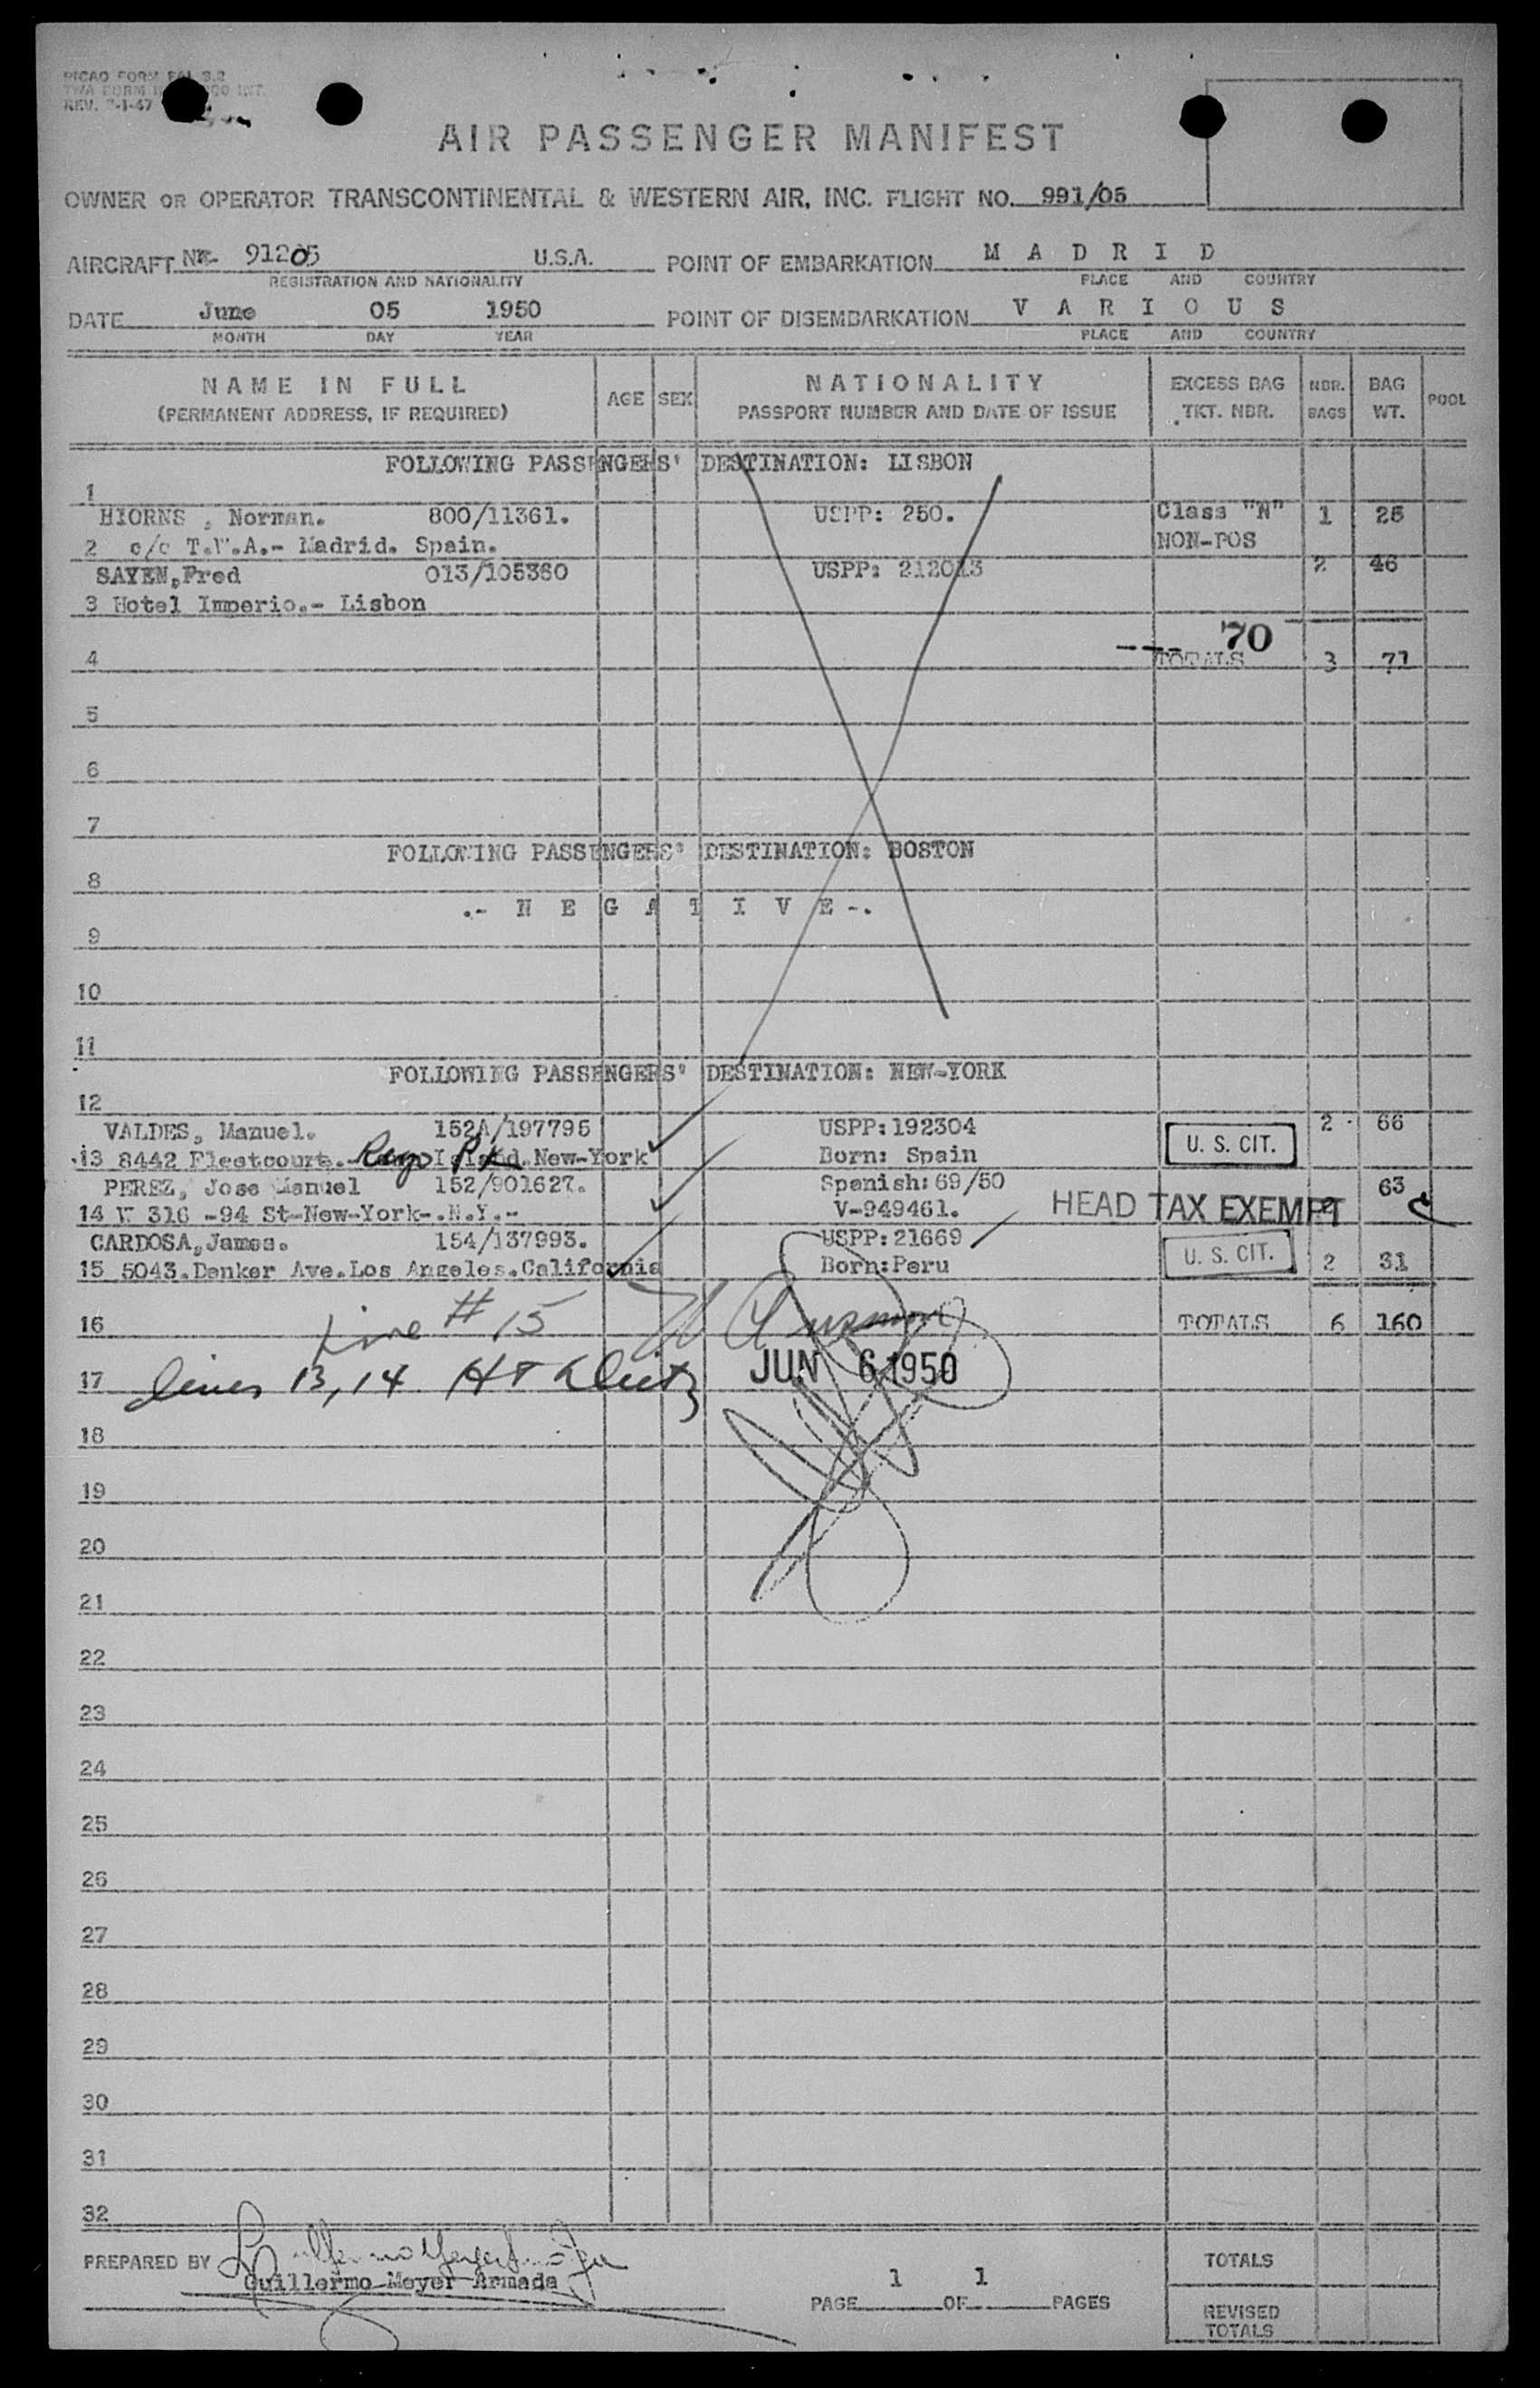 PICAO FORM FAL 3.2
TWA FORM INT.
REV. 7-1-47
AIR PASSENGER MANIFEST
OWNER OR OPERATOR TRANSCONTINENTAL & WESTERN AIR, INC. FLIGHT NO. 991/05
AIRCRAFT 91205 U.S.A. POINT OF EMBARKATION M A D R I D
REGISTRATION AND NATIONALITY PLACE AND COUNTRY
DATE June 05 1950 POINT OF DISEMBARKATION V A R I O U S
MONTH DAY YEAR PLACE AND COUNTRY
NAME IN FULL AGE SEX NATIONALITY EXCESS BAG NBR. BAG POOL
(PERMANENT ADDRESS, IF REQUIRED) PASSPORT NUMBER AND DATE OF ISSUE TKT. NBR. BAGS WT.
FOLLOWING PASSENGERS' DESTINATION: LISBON
1
HIORNS , Norman. 800/11361. USPP: 250. Class "N" 1 25
2 c/o T.W.A.- Madrid. Spain. NON-POS
SAYEN,Fred 013/105360 USPP: 212013 2 46
3 Hotel Imperio.- Lisbon
70
4 TOTALS 3 71
5
6
7
FOLLOWING PASSENGERS' DESTINATION: BOSTON
8
.- N E G A T I V E -.
9
10
11
FOLLOWING PASSENGERS' DESTINATION: NEW-YORK
12
VALDES, Manuel. 152A/197795 USPP:192304 2 66
13 8442 Fleetcourt.- Rego Pk Island.New-York Born: Spain U. S. CIT.
PEREZ, Jose Manuel 152/901627. Spanish:69/50 63
14 W 316 -94 St-New-York-.N.Y.- V-949461. HEAD TAX EXEMPT 2
CARDOSA,James. 154/137993. USPP:21669
15 5043.Denker Ave.Los Angeles.California Born:Peru U. S. CIT. 2 31
16 Line # 15 TOTALS 6 160
17 lines 13, 14 JUN 6 1950
18
19
20
21
22
23
24
25
26
27
28
29
30
31
32
PREPARED BY TOTALS
Guillermo Meyer Armada
1 1
PAGE OF PAGES
REVISED
TOTALS